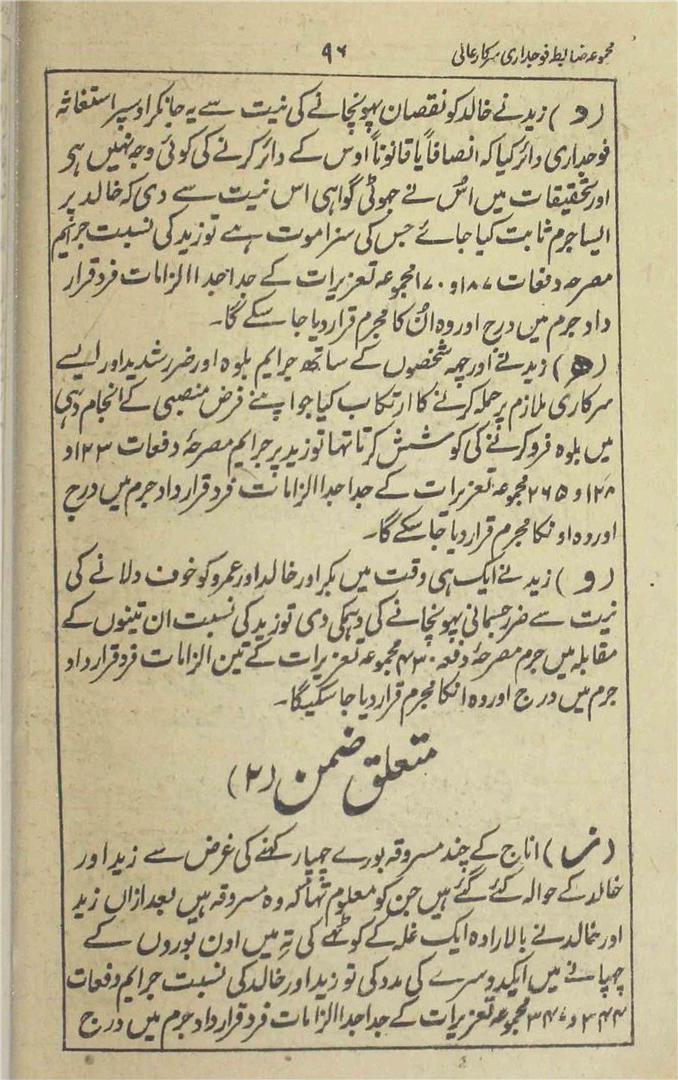 مجموعہ ضابطہ فوجداری سرکار عالی ۹۶
(و) زید نے خالد کو نقصان پہونچانے کی نیت سے یہ جانکر اوسپر استغاثہ
فوجداری دائر کیا کہ انصافاً یا قانوناً اوس کے دائر کرنے کی کوئی وجہ نہیں ہی
اور تحقیقات میں اس نے جہوٹی گواہی اس نیت سے دی کہ خالد پر
ایسا جرم ثابت کیا جائے جس کی سزا موت ہے تو زید کی نسبت جرایم
مصرحہ دفعات ۱۸۷ و ۱۷۰ مجموعہ تعزیرات کے جدا جدا الزامات فرد قرار
داد جرم میں درج اور وہ ان کا مجرم قرار دیا جا سکے گا۔
(ھ) زید نے اور چہہ شخصوں کے ساتھ جرایم بلوہ اور ضرر شدید اور ایسے
سرکاری ملازم پر حملہ کرنے کا ارتکاب کیا جو اپنے فرض منصبی کے انجام دہی
میں بلوہ فرو کرنے کی کوشش کرتا تہا تو زید پر جرایم مصرحۂ دفعات ۱۲۳ و
۱۲۸ و ۲۶۵ مجموعہ تعزیرات کے جدا جدا الزامات فرد قرار داد جرم میں درج
اور وہ اونکا مجرم قرار دیا جا سکے گا۔
(و) زید نے ایک ہی وقت میں بکر اور خالد اور عمرو کو خوف دلانے کی
نیت سے ضرر جسمانی پہونچانے کی دہمکی دی تو زید کی نسبت ان تینوں کے
مقابلہ میں جرم مصرحۂ دفعہ ۴۳۰ مجموعہ تعزیرات کے تین الزامات فرد قرار داد
جرم میں درج اور وہ انکا مجرم قرار دیا جا سکیگا۔
متعلق ضمن (۲)
(ز) اناج کے چند مسروقہ بورے چہپا رکہنے کی غرض سے زید اور
خالد کے حوالہ کئے گئے ہیں جن کو معلوم تہا کہ وہ مسروقہ ہیں بعد ازاں زید
اور خالد نے بالارادہ ایک غلہ کے کوٹہے کی تہ میں اون بوروں کے
چہپانے میں ایکدوسرے کی مدد کی تو زید اور خالد کی نسبت جرایم دفعات
۳۴۴ و ۳۴۷ مجموعہ تعزیرات کے جدا جدا الزامات فرد قرار داد جرم میں درج